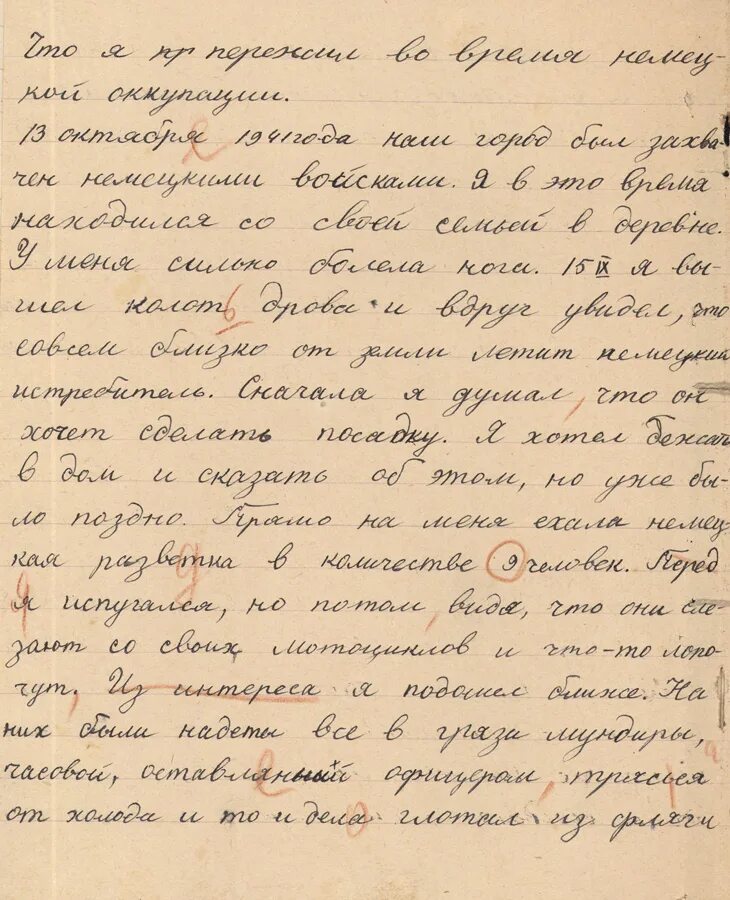 Что я пр пережил во время немец-
кой оккупации.
13 октября 1941 года наш город был захва-
чен немецкими войсками. Я в это время
находился со своей семьей в деревне.
У меня сильно болела нога. 15 IX я вы-
шел колоть дрова и вдруг увидел, что
совсем близко от земли летит немецкий
истребитель. Сначала я думал, что он
хочет сделать посадку. Я хотел бежать
в дом и сказать об этом, но уже бы-
ло поздно. Прямо на меня ехала немец-
кая разветка в количестве 9 человек. Перед
я испугался, но потом, видя, что они сле-
зают со своих мотоциклов и что-то лопо-
чут. Из интереса я подошел ближе. На
них были надеты все в грязи мундиры,
часовой, оставленый офицером, трясься
от холода и то и дело глотал из фляги